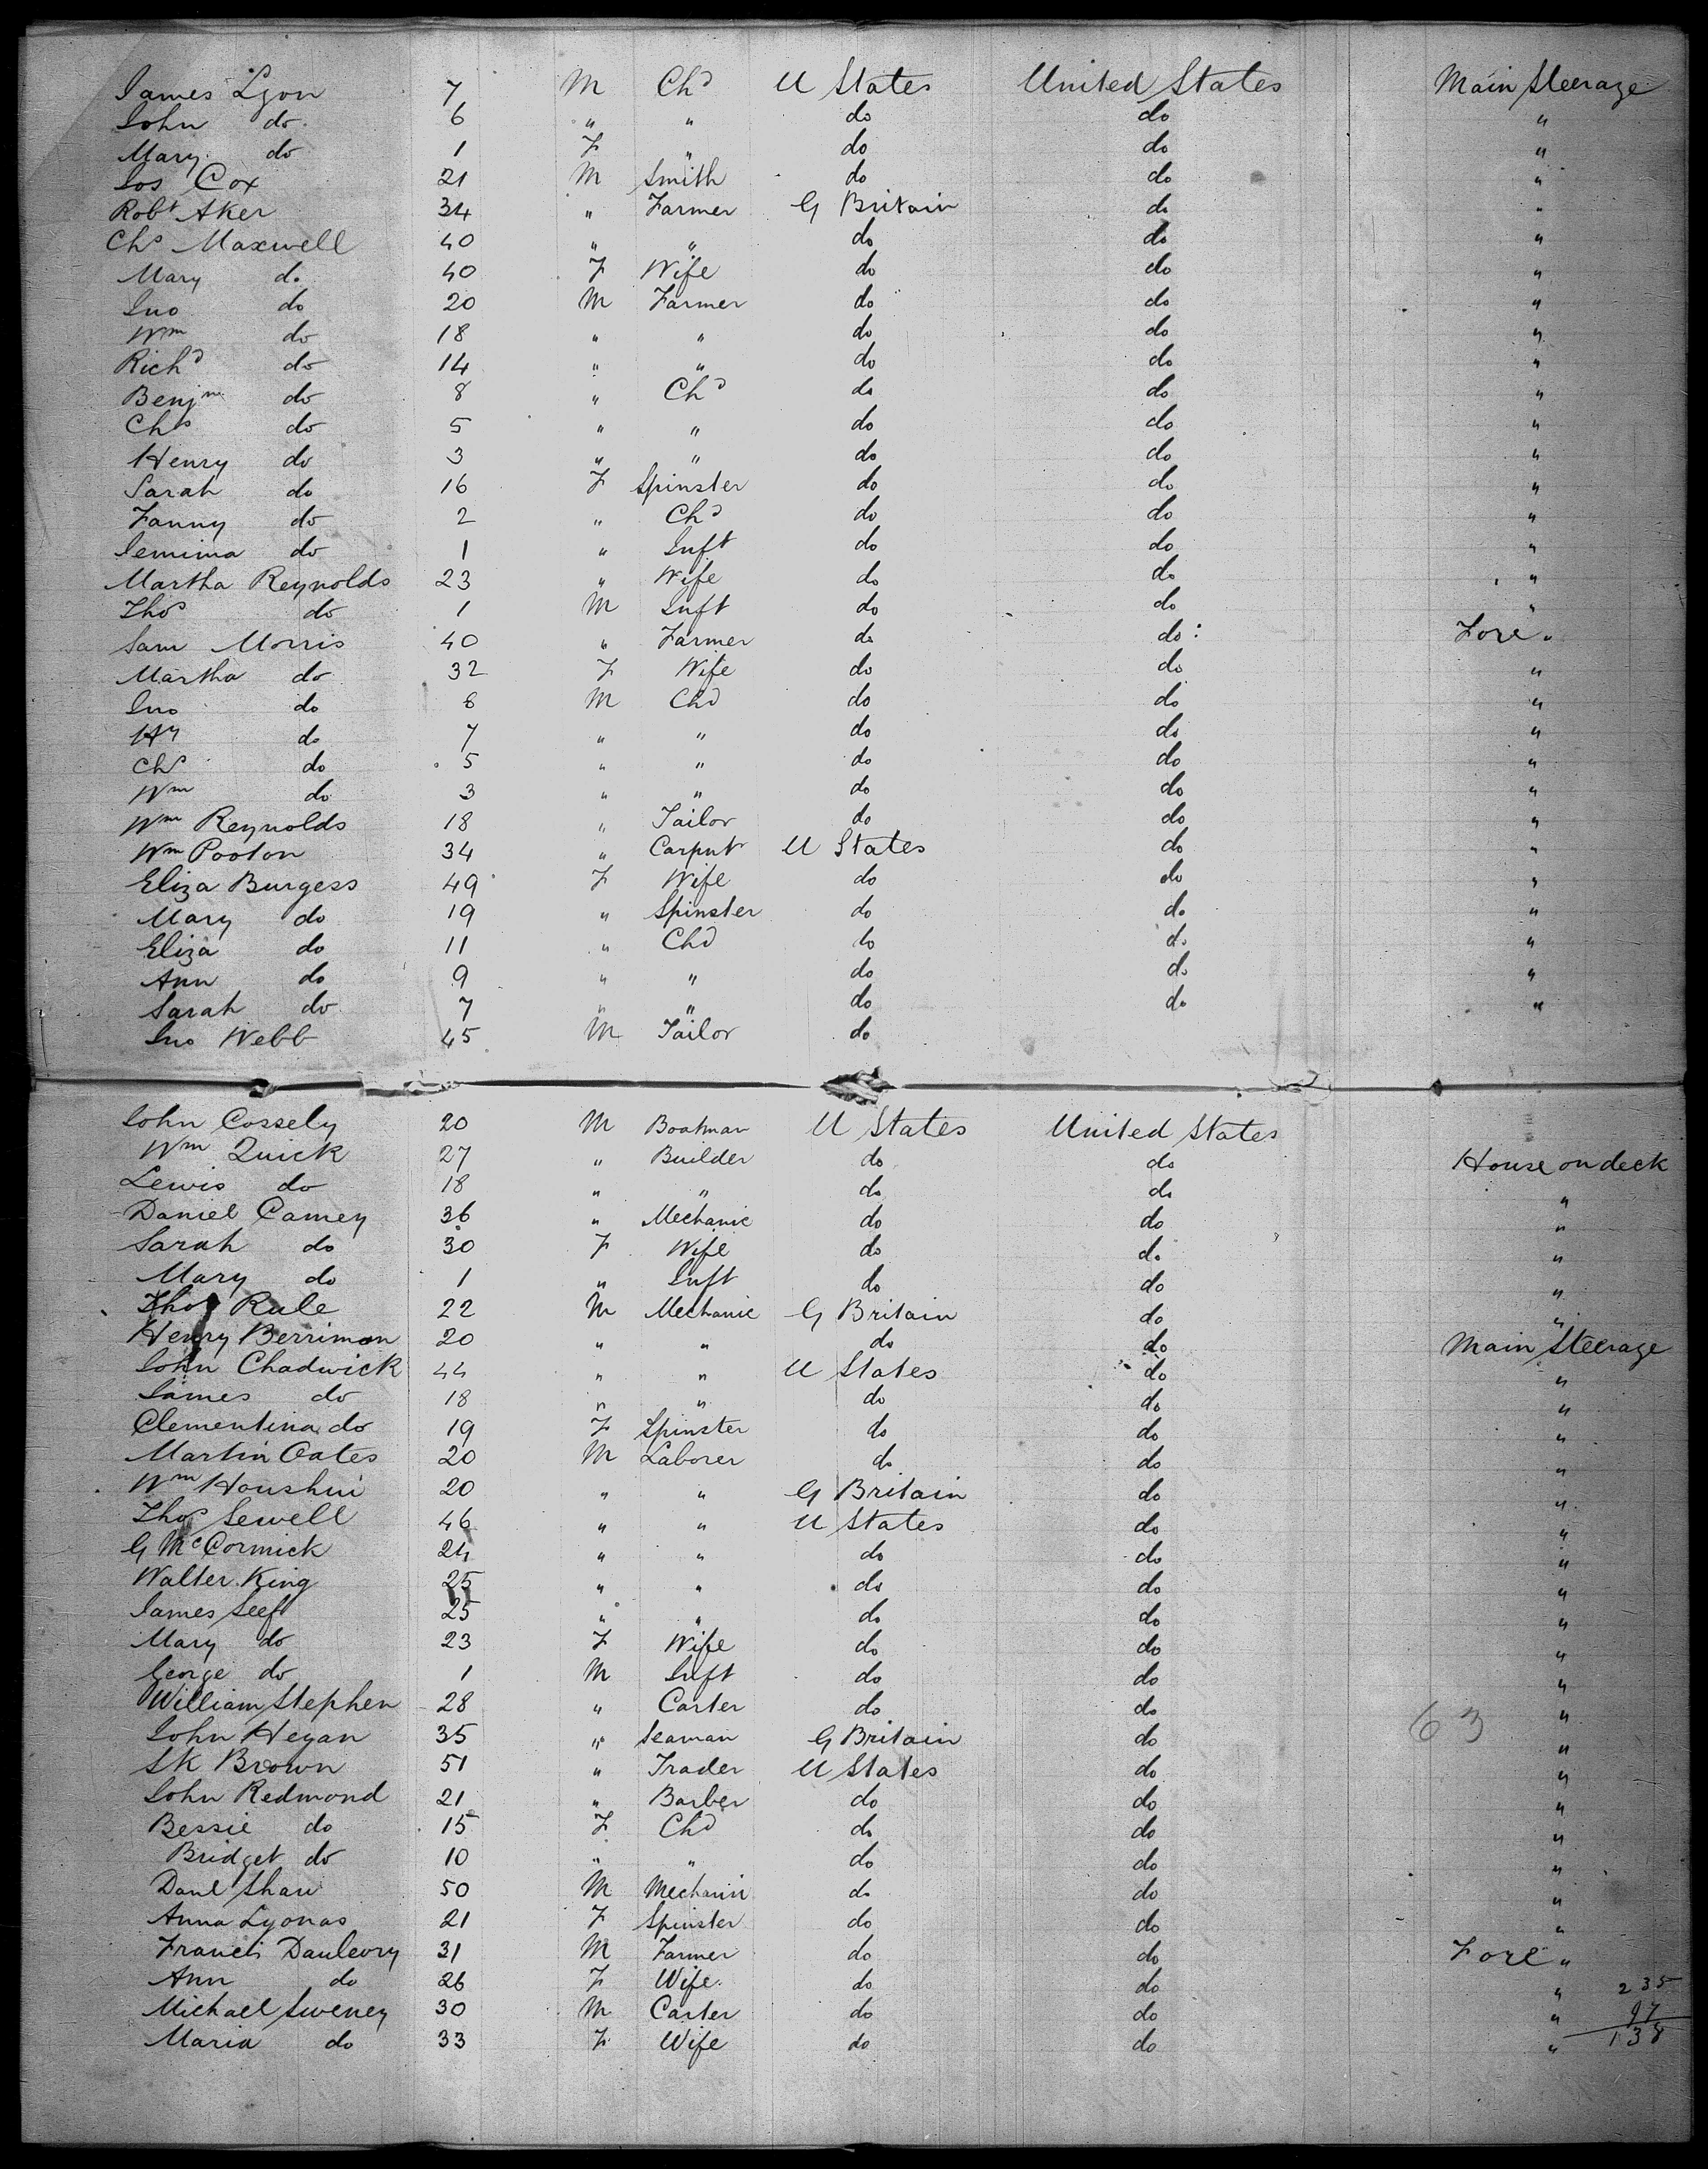 James Lyon 7 M Chd U States United States Main Steerage
John do 6 " " do do "
Mary do 1 F " do do "
Jos Cox 21 M Smith do do "
Robt Aker 34 " Farmer G Britain do "
Chs Maxwell 40 " " do do "
Mary do 40 F Wife do do "
Jno do 20 M Farmer do do "
Wm do 18 " " do do "
Richd do 14 " " do do "
Benjmn do 8 " Chd do do "
Chs do 5 " " do do "
Henry do 3 " " do do "
Sarah do 16 F Spinster do do "
Fanny do 2 " Chd do do "
Jemima do 1 " Inft do do "
Martha Reynolds 23 " Wife do do "
Thos do 1 M Inft do do "
Sam Morris 40 " Farmer do do Fore "
Martha do 32 F Wife do do "
Jno do 8 M Chd do do "
Hy do 7 " " do do "
Chs do 5 " " do do "
Wm do 3 " " do do "
Wm Reynolds 18 " Tailor do do "
Wm Pooton 34 " Carpntr U States do "
Eliza Burgess 49 F Wife do do "
Mary do 19 " Spinster do do "
Eliza do 11 " Chd do do "
Ann do 9 " " do do "
Sarah do 7 " " do do "
Jno Webb 45 M Tailor do
John Cossely 20 M Boatman U States United States
Wm Quick 27 " Builder do do House on deck
Lewis do 18 " " do do "
Daniel Camey 36 " Mechanic do do "
Sarah do 30 F Wife do do "
Mary do 1 " Inft do do "
Thos Rule 22 M Mechanic G Britain do "
Henry Berriman 20 " " do do Main Steerage
John Chadwick 44 " " U States do "
James do 18 " " do do "
Clementina do 19 F Spinster do do "
Martin Oates 20 M Laborer do do "
Wm Houshin 20 " " G Britain do "
Thos Sewell 46 " " U States do "
G McCormick 24 " " do do "
Walter King 25 " " do do "
James Seeft 25 " " do do "
Mary do 23 F Wife do do "
George do 1 M Inft do do "
William Stephen 28 " Carter do do "
John Hegan 35 " Seaman G Britain do 63 "
SK Brown 51 " Trader U States do "
John Redmond 21 " Barber do do "
Bessie do 15 F Chd do do "
Bridget do 10 " " do do "
Danl Shaw 50 M Mechanic do do "
Anna Lyonas 21 F Spinster do do "
Francis Daulevry 31 M Farmer do do Fore "
Ann do 26 F Wife do do " 235
Michael Sweney 30 M Carter do do " 97
Maria do 33 F Wife do do " 138